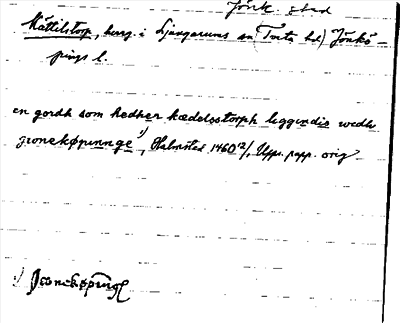 Jönk. stad
Kättilstorp, herg. i Ljungarums sn (Tveta hd) Jönkö-
pings l.
en gordh som hedher kædelsstorph liggendis wedh
gronekøpunnge 1), Halmsted 1460 12/1, Upps. papp. orig.
1) Jronekøping